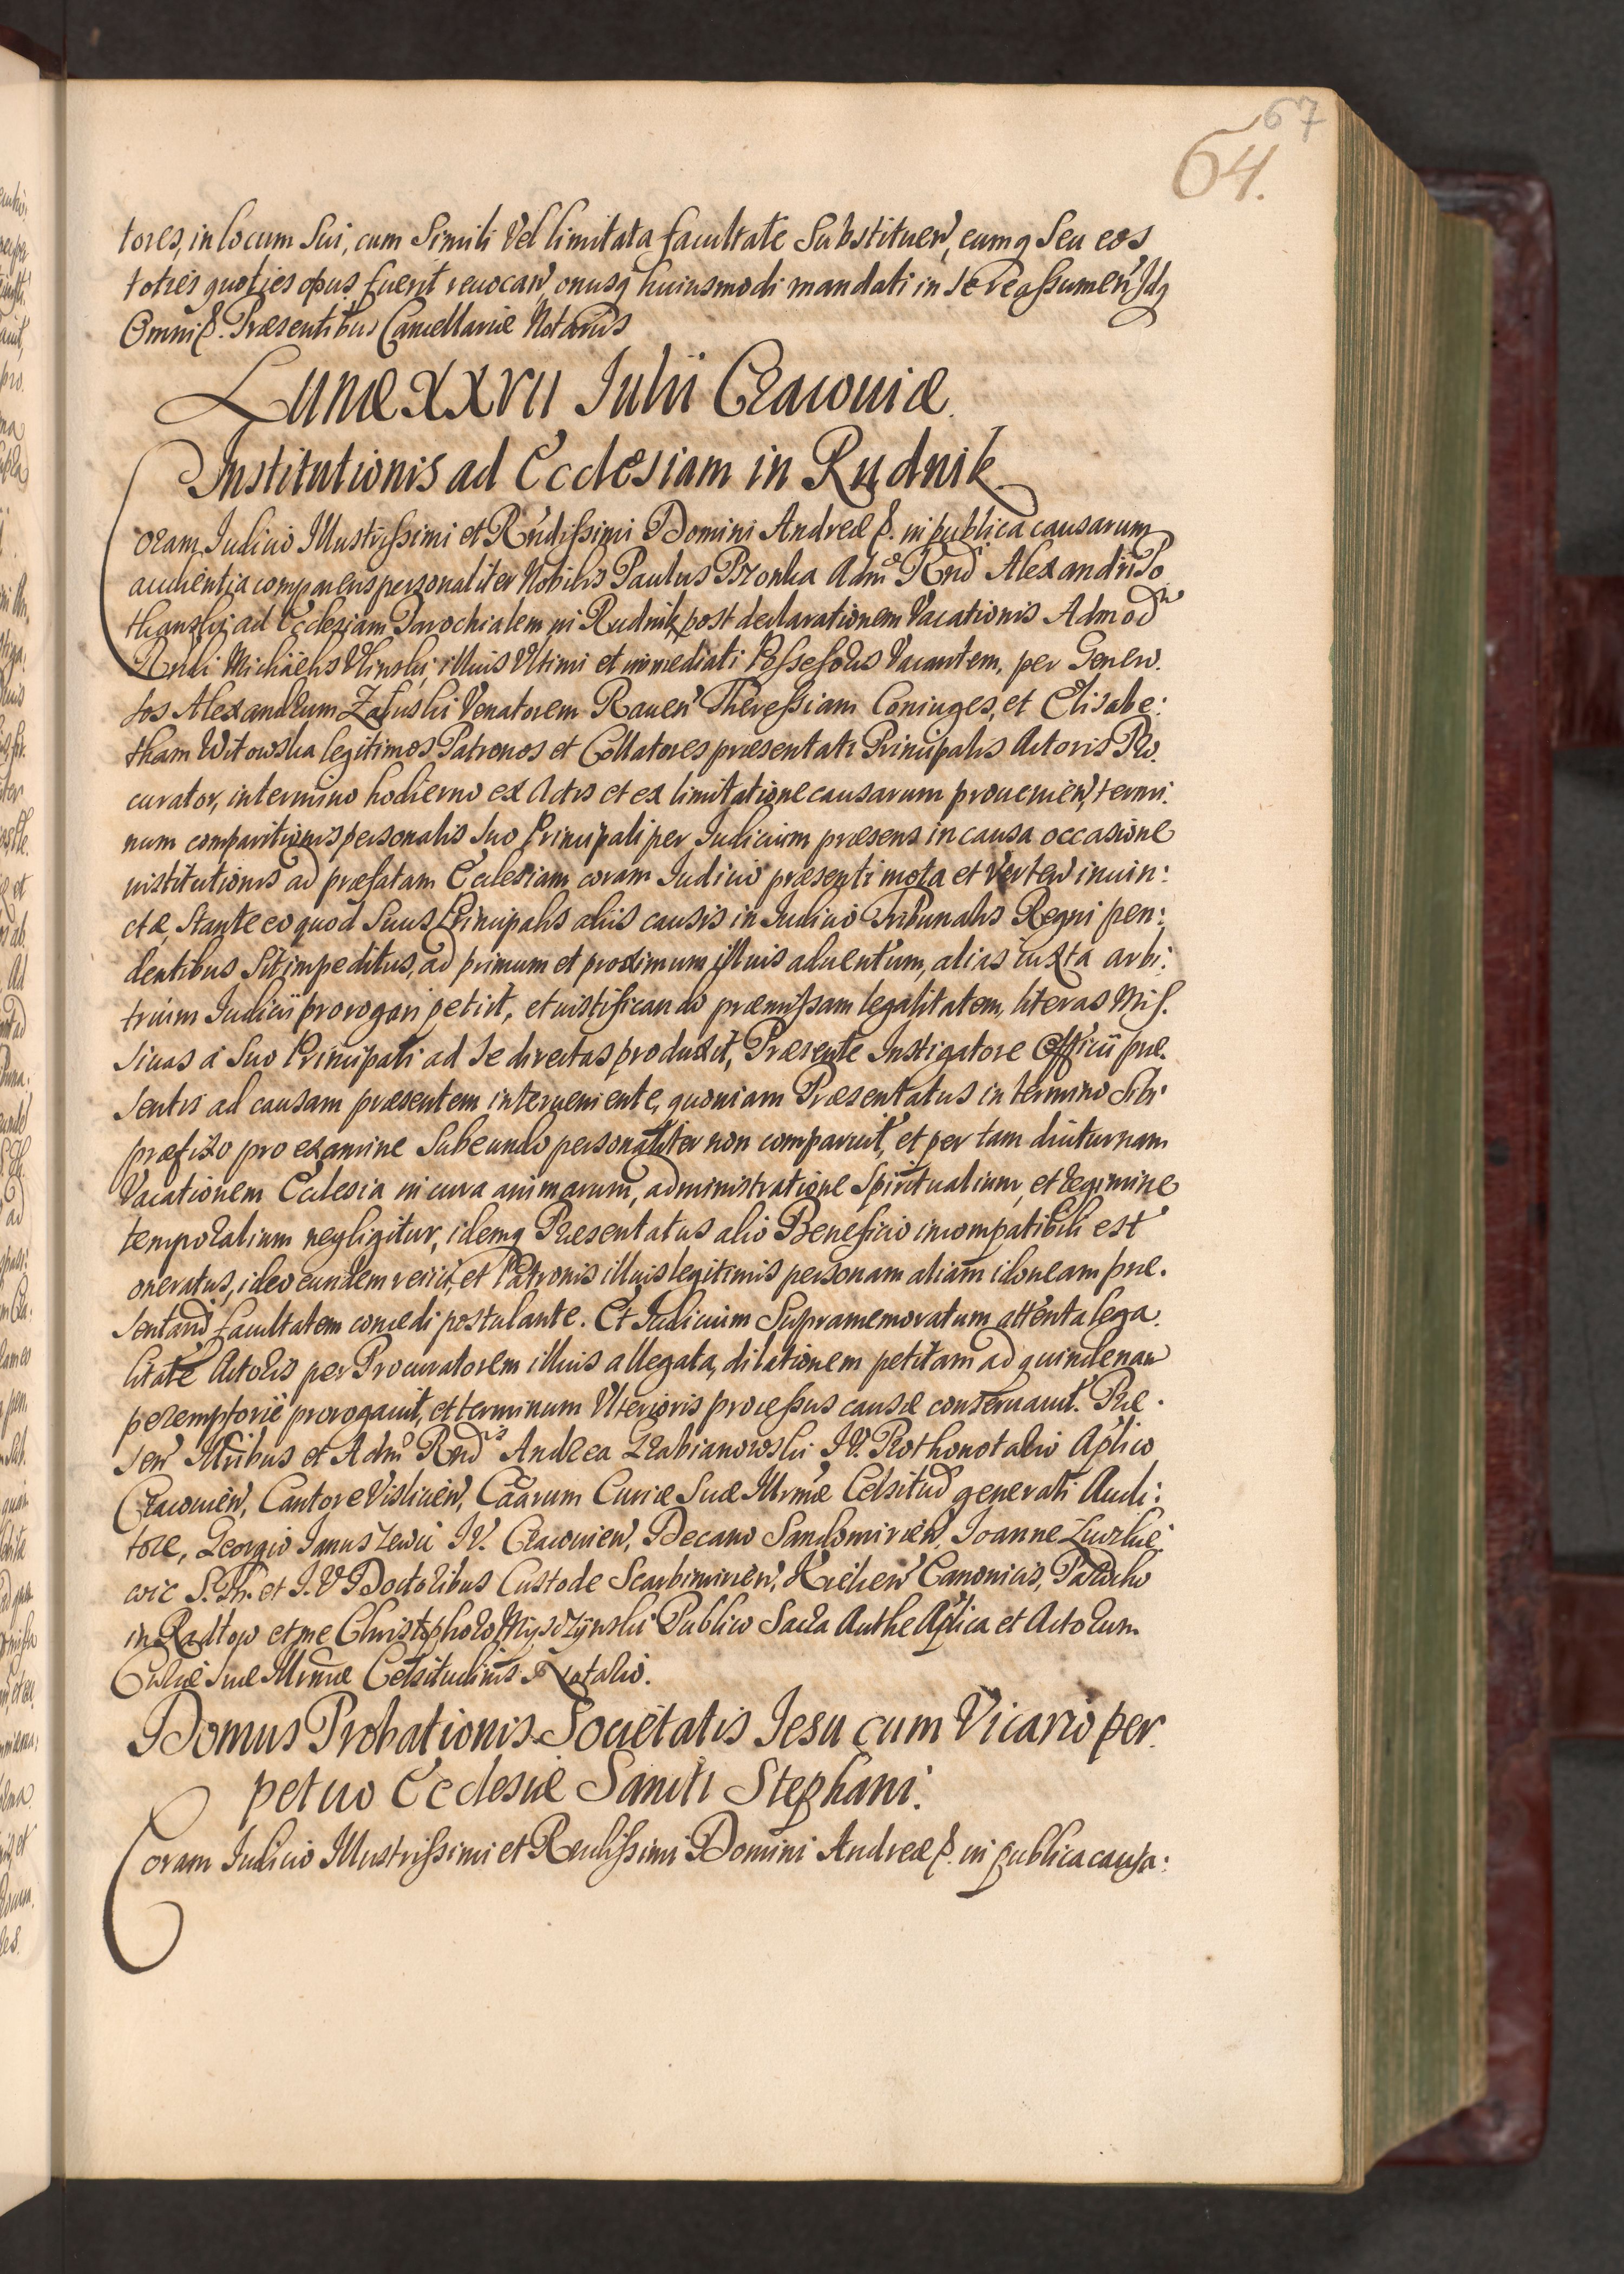 67
64.
tores, in locum Sui, cum Simili Vel limitata facultate Substituen, eumq Seu eos
toties quoties opus fuerit reuocan, onusq huiusmodi mandati in se reassumen
Omni Præsentibus Cancellariæ Notariis
Lunæ XXVII Iulii Cracouiæ.
Institutionis ad Ecclesiam in Rudnik
Coram Iudicio Illustrissimi et Rndissimi Domini Andreæ in publica causarum
audientia comparens personaliter Nobilis Paulus Bronka Admo Rnd Alexandri Po
thanski ad Ecclesiam Parochialem in Rudnik post declarationem Vacationis Admod
Rndi Michaelis Vlinski, illius Vltimi et immediati Possessoris Vacantem, per Genero.
sos Alexandrum Załuski Venatorem Rauen Theressiam Coniuges, et Elisabe:
tham Witowska legitimos Patronos et Collatores præsentati Principalis Actoris Pro.
curator, in termino hodierno ex Actis et ex limitatione causarum prouenien, termi.
num comparitionis personalis Suo Principali per Iudicium præsens in causa occasione
institutionis ad præfatam Ecclesiam coram Iudicio præsenti mota et Verten iniun:
ctæ, Stante eo quod Suus Principalis aliis causis in Iudicio Tribunalis Regni pen:
dentibus Sit impeditus, ad primum et proximum illius aduentum, alias iuxta arbi:
trium Iudicii prorogari petiit, et iustificando præmissam legalitatem, literas Mis.
siuas a Suo Principali ad Se directas produxit, Præsente Instigatore Officii præ.
sentis ad causam præsentem interueniente, quoniam Præsentatus in termino Sibi
præfixo pro examine Subeundo personaliter non comparuit, et per tam diuturnam
Vacationem Ecclesia in cura animarum, administratione Spiritualium, et regimine
temporalium negligitur, idemq Præsentatus alio Beneficio incompatibili est
oneratus, ideo eundem reiici, et Patronis illius legitimis personam aliam idoneam præ.
sentand facultatem concedi postulante. Et Iudicium Supramemoratum attenta lega.
litate Actoris per Procuratorem illius allegata, dilationem petitam ad quindenam
peremptorie prorogauit, et terminum Vlterioris processus causæ conseruauit. Præ.
sen Illribus et Admo Rndis Andrea Grabianowski I.V. Prothonotario Aplico
Cracouien, Cantore Vislicien, Caarum Curiæ Suæ Illrmæ Celsitud generali Audi:
tore, Georgio Ianuszewic I.V. Cracouien, Decano Sandomirien, Ioanne
wic S.Th. et I.V Doctoribus Custode Scarbimirien, Kielcen Canonicis,
in Radłow et me Christophoro Publico Sacra Authe Aplica et Actorum
Curiæ Suæ Illrmæ Celsitudinis Notario.
Domus Probationis Societatis Iesu cum Vicario per.
petuo Ecclesiæ Sancti Stephani.
Coram Iudicio Illustrissimi et Rendissimi Domini Andreæ in publica causa: